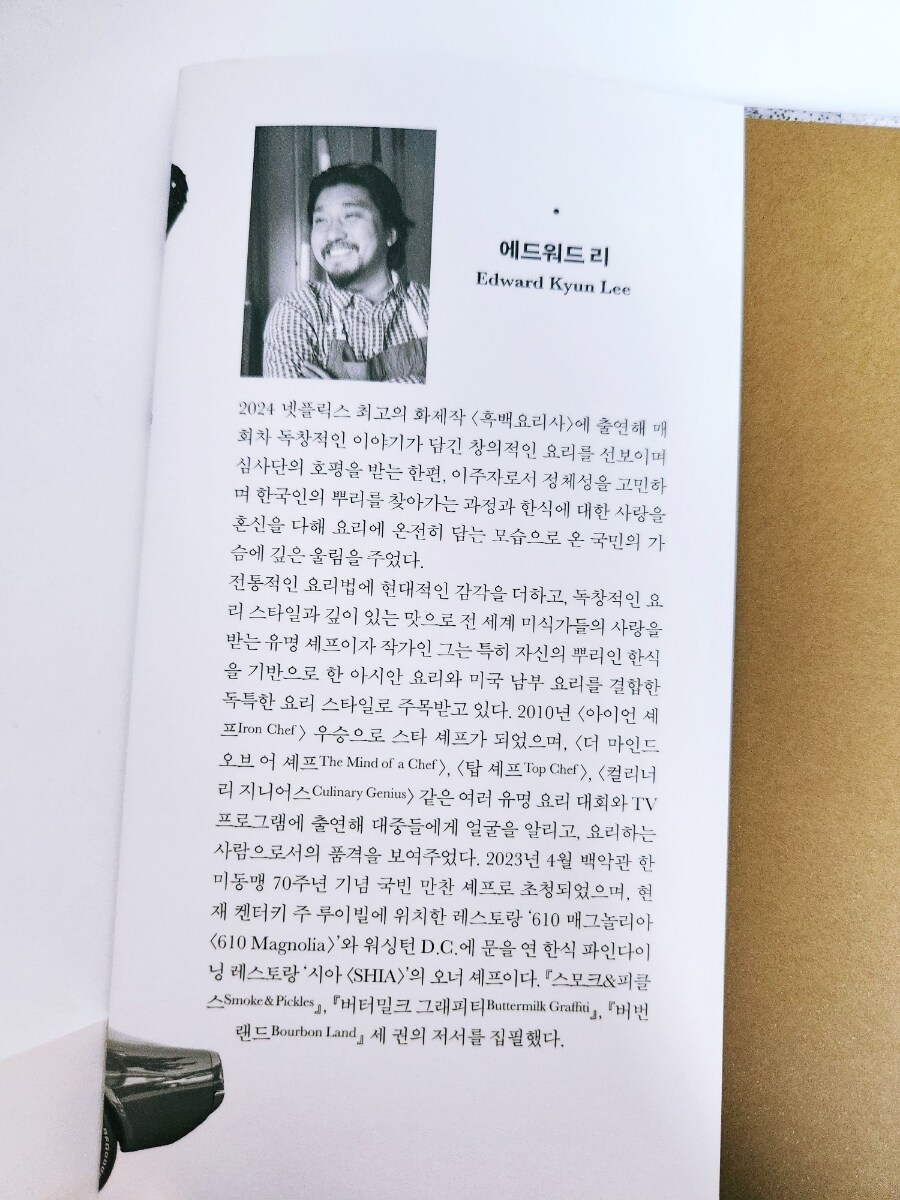 에드워드 리
Edward Kyun Lee
2024 넷플릭스 최고의 화제작 〈흑백요리사〉에 출연해 매
회차 독창적인 이야기가 담긴 창의적인 요리를 선보이며
심사단의 호평을 받는 한편, 이주자로서 정체성을 고민하
며 한국인의 뿌리를 찾아가는 과정과 한식에 대한 사랑을
혼신을 다해 요리에 온전히 담는 모습으로 온 국민의 가
슴에 깊은 울림을 주었다.
전통적인 요리법에 현대적인 감각을 더하고, 독창적인 요
리 스타일과 깊이 있는 맛으로 전 세계 미식가들의 사랑을
받는 유명 셰프이자 작가인 그는 특히 자신의 뿌리인 한식
을 기반으로 한 아시안 요리와 미국 남부 요리를 결합한
독특한 요리 스타일로 주목받고 있다. 2010년 〈아이언 셰
프Iron Chef〉 우승으로 스타 셰프가 되었으며, 〈더 마인드
오브 어 셰프The Mind of a Chef〉, 〈탑 셰프Top Chef〉, 〈컬리너
리 지니어스Culinary Genius〉 같은 여러 유명 요리 대회와 TV
프로그램에 출연해 대중들에게 얼굴을 알리고, 요리하는
사람으로서의 품격을 보여주었다. 2023년 4월 백악관 한
미동맹 70주년 기념 국빈 만찬 셰프로 초청되었으며, 현
재 켄터키 주 루이빌에 위치한 레스토랑 ‘610 매그놀리아
〈610 Magnolia〉’와 워싱턴 D.C.에 문을 연 한식 파인다이
닝 레스토랑 ‘시아 〈SHIA〉’의 오너 셰프이다. 『스모크&피클
스Smoke & Pickles』, 『버터밀크 그래피티Buttermilk Graffiti』, 『버번
랜드Bourbon Land』 세 권의 저서를 집필했다.